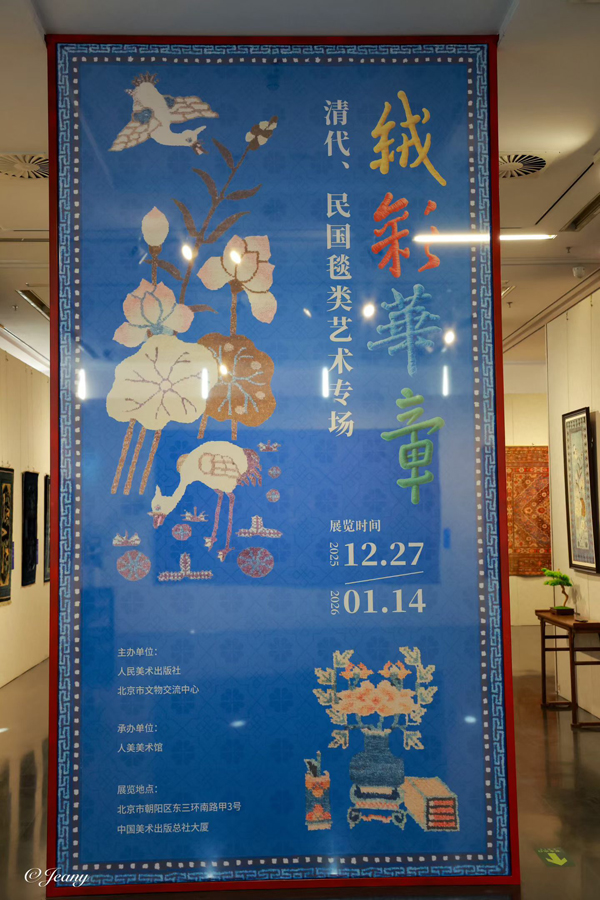 绒彩華章
清代、民国毯类艺术专场
展览时间
2025
12.27
2026
01.14
主办单位：
人民美术出版社
北京市文物交流中心
承办单位：
人美美术馆
展览地点：
北京市朝阳区东三环南路甲3号
中国美术出版总社大厦
©Jeany